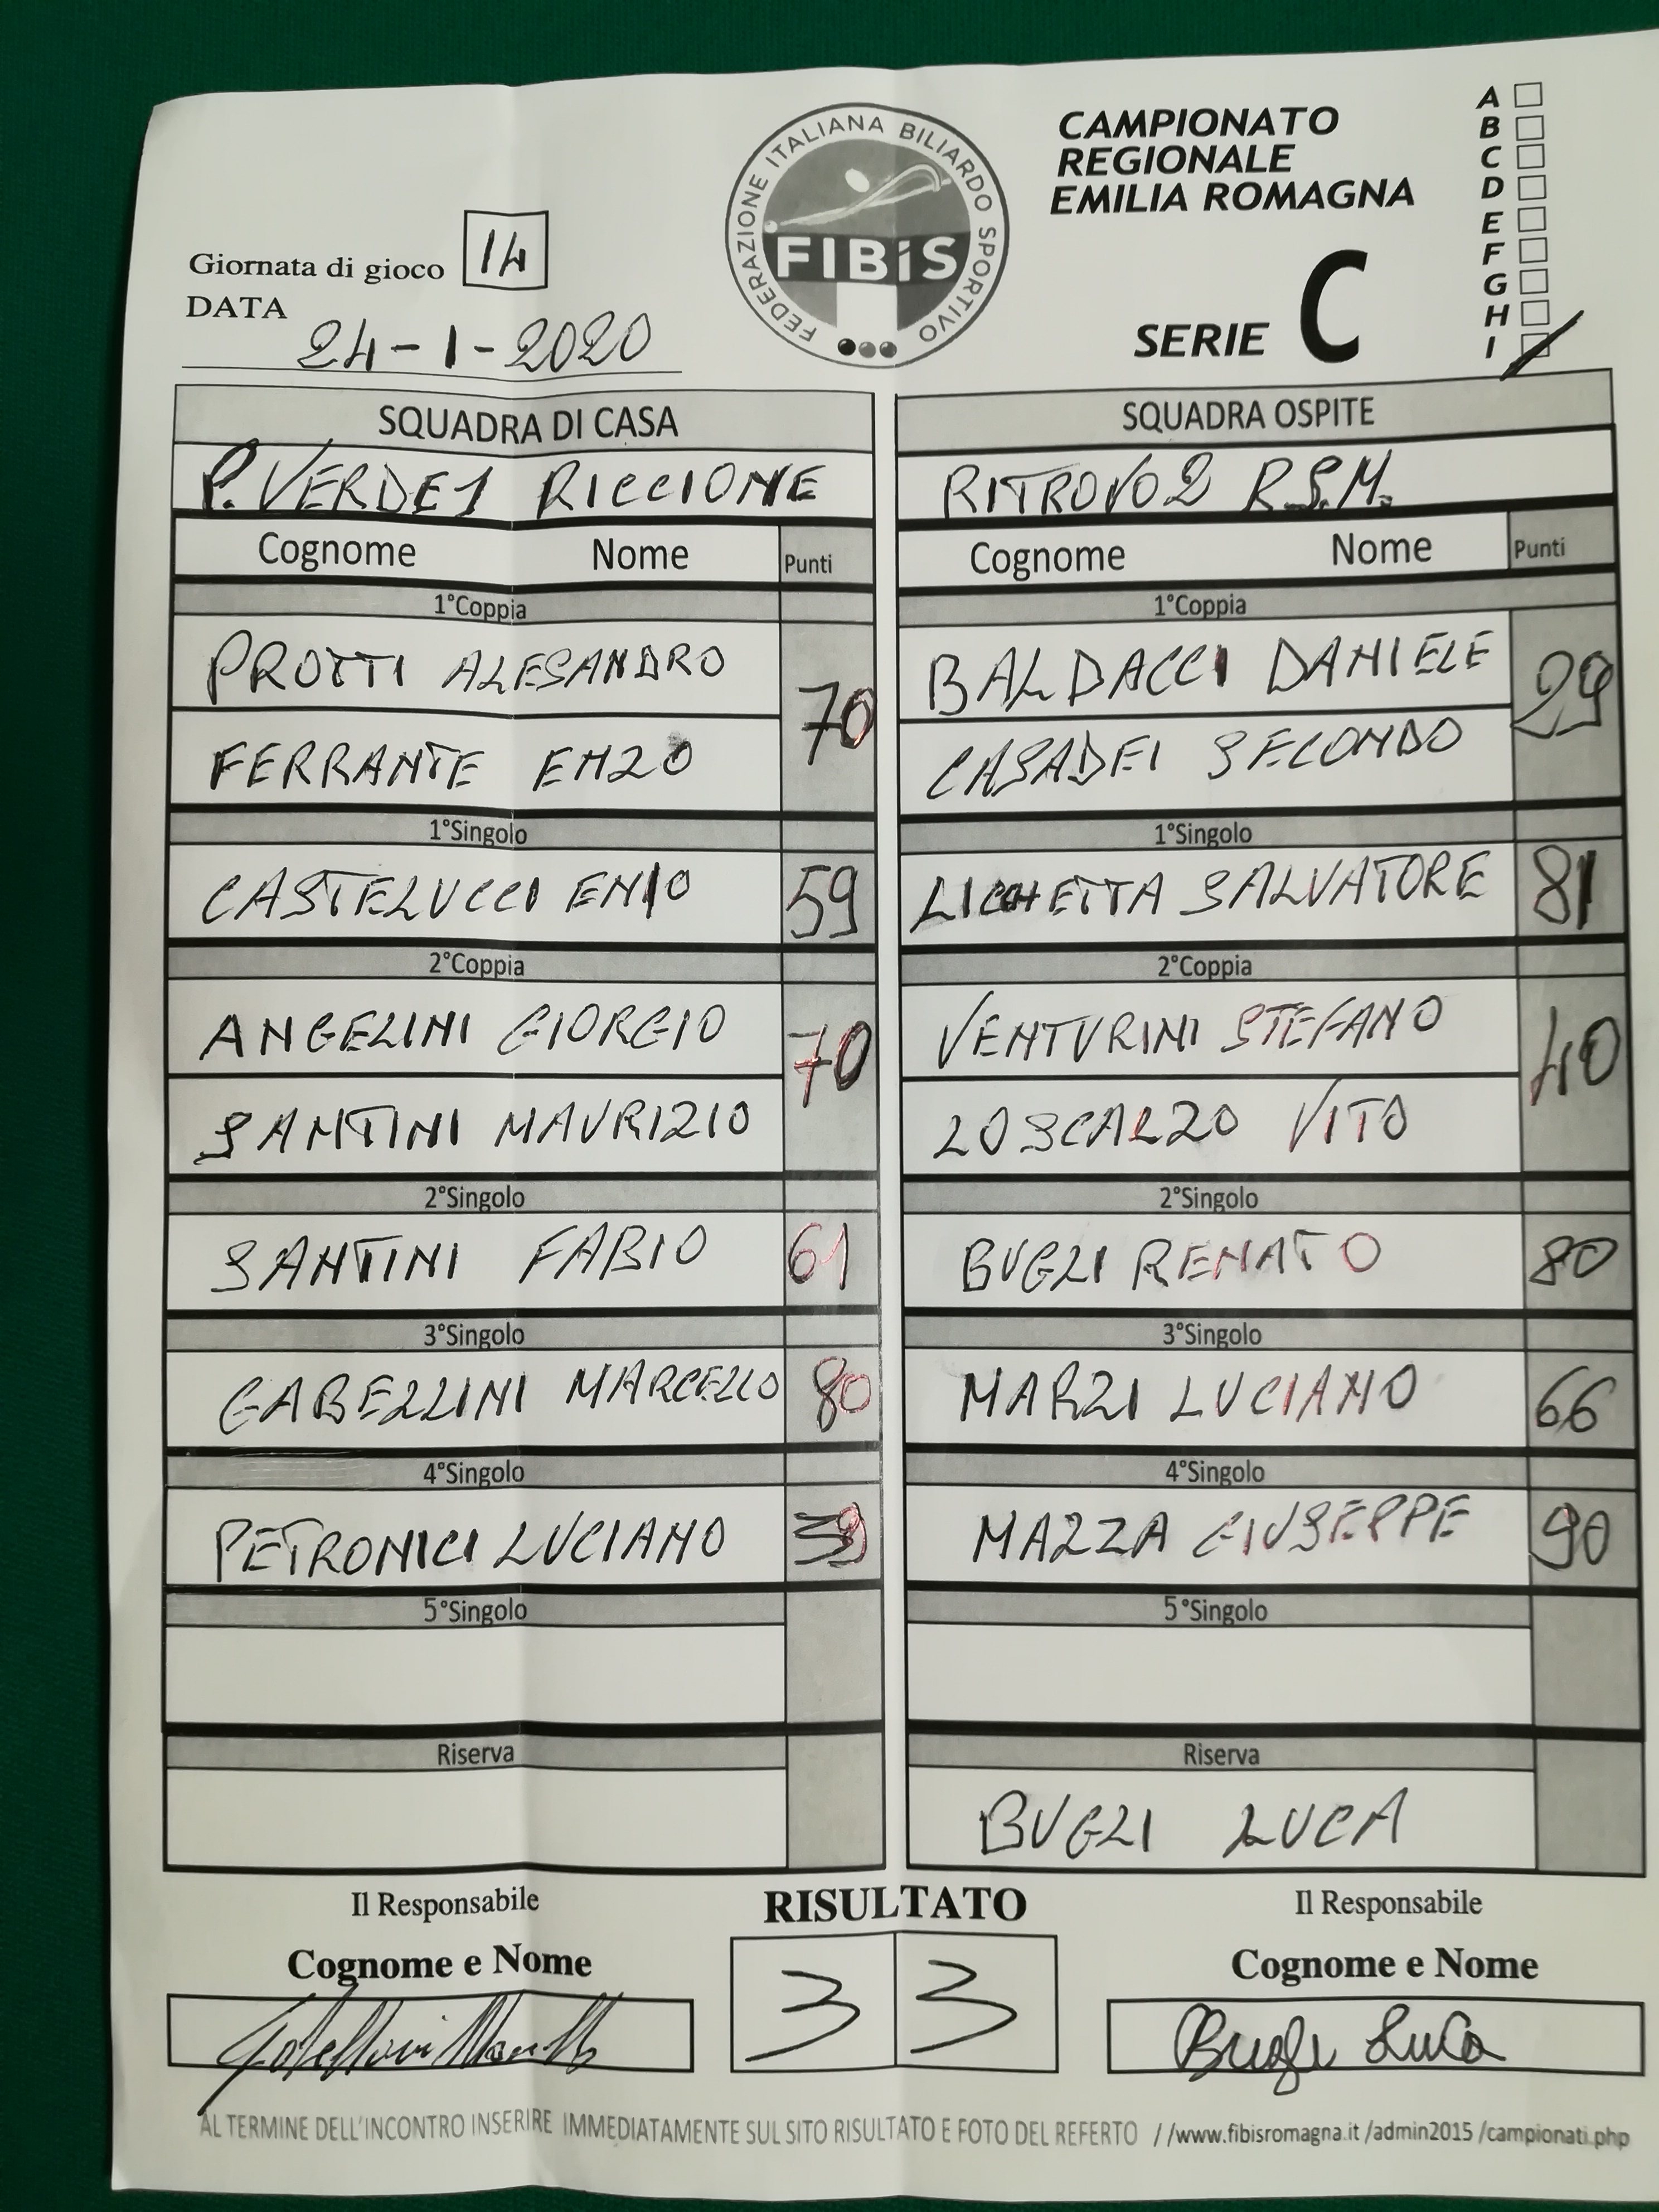 FEDERAZIONE ITALIANA BILIARDO SPORTIVO
FIBiS
CAMPIONATO
REGIONALE
EMILIA ROMAGNA
SERIE C
A
B
C
D
E
F
G
H
I
Giornata di gioco 14
DATA
24-1-2020
SQUADRA DI CASA
P. VERDE 1 RICCIONE
Cognome Nome Punti
1°Coppia
PROTTI ALESANDRO
70
FERRANTE ENZO
1°Singolo
CASTELUCCI ENIO 59
2°Coppia
ANGELINI GIORGIO
70
SANTINI MAURIZIO
2°Singolo
SANTINI FABIO 61
3°Singolo
GABELLINI MARCELLO 80
4°Singolo
PETRONICI LUCIANO
5°Singolo
Riserva
SQUADRA OSPITE
RITROVO 2 R.S.M.
Cognome Nome Punti
1°Coppia
BALDACCI DANIELE
29
CASADEI SECONDO
1°Singolo
LICCHETTA SALVATORE 81
2°Coppia
VENTURINI STEFANO
40
LOSCALZO VITO
2°Singolo
BUGLI RENATO 80
3°Singolo
MARZI LUCIANO 66
4°Singolo
MAZZA GIUSEPPE 90
5°Singolo
Riserva
BUGLI LUCA
Il Responsabile
Cognome e Nome
RISULTATO
3 3
Il Responsabile
Cognome e Nome
Bugli Luca
AL TERMINE DELL'INCONTRO INSERIRE IMMEDIATAMENTE SUL SITO RISULTATO E FOTO DEL REFERTO //www.fibisromagna.it/admin2015/campionati.php